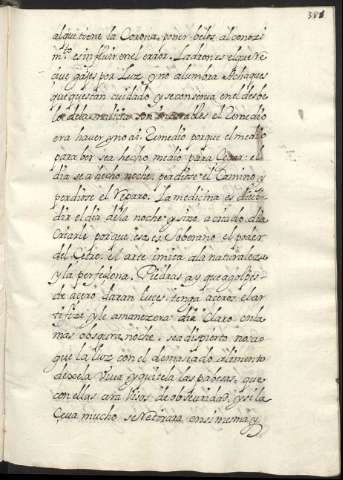 388
al que tiene la Corona, poner velos al conozi
mto es influir en el error. Ladron es el que ve
que gases por Luz y no alumbra Achaques
que questan cuidado y se conserva en el deseo
los de la malicia son incurables el Remedio
era haver y no ai Remedio porque el medio
para ber sea hecho medio para Cegar el
dia se a hecho noche perdiose el Camino y
perdiose el Reparo. La medicina es distin
dir el dia de la noche y si no a criado dia
Criarle porque esa es Soberano el poder
del Cetro. el arte imita a la naturaleza
y la perfeziona. Piedras ay que a golpes
de azero daran luces tenga azeros el ar
tifize y le amanezera dia Claro en la
mas obscura noche. sea dispierto no zio
que la Luz con el demasiado alimento
dexela viva y quitela las pabezas, que
con ellas ara visos de obscuridad, y si la
Ceva mucho se Retirara en si misma y